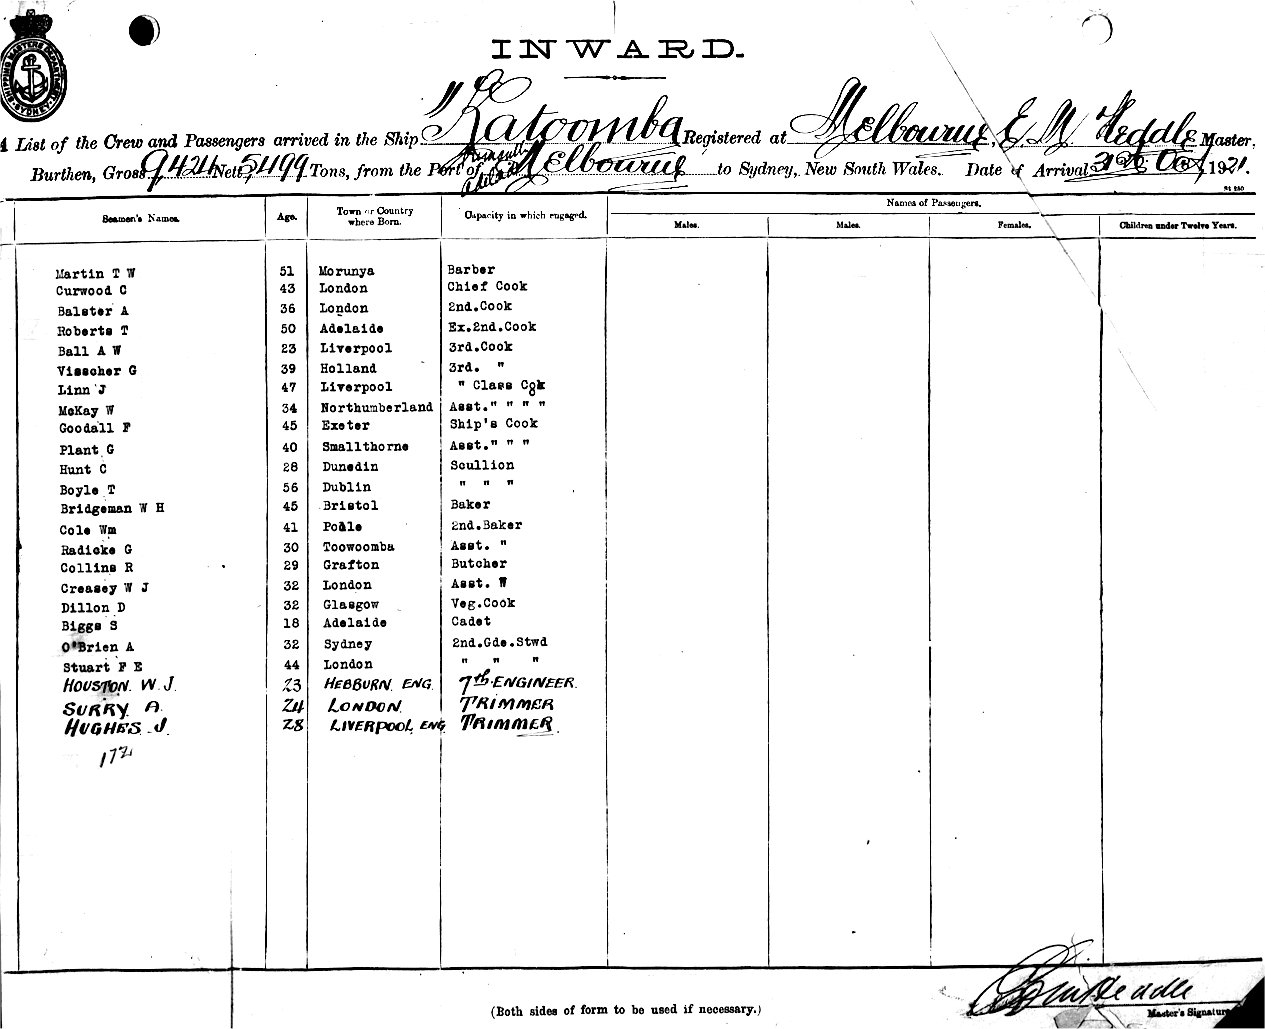 SHIPPING MASTERS DEPARTMENT SYDNEY
INWARD.
A List of the Crew and Passengers arrived in the Ship "Katoomba Registered at Melbourne, E M Heddle Master,
Burthen, Gross 9,424 Nett 5,499 Tons, from the Port of Fremantle Adelaide Melbourne to Sydney, New South Wales. Date of Arrival Oct 1921.
Seamen's Names. Age. Town or Country where Born. Capacity in which engaged. Names of Passengers.
Males. Males. Females. Children under Twelve Years.
Martin T W 51 Morunya Barber
Curwood C 43 London Chief Cook
Balster A 36 London 2nd.Cook
Roberts T 50 Adelaide Ex.2nd.Cook
Ball A W 23 Liverpool 3rd.Cook
Visscher G 39 Holland 3rd. "
Linn J 47 Liverpool " Class Cook
McKay W 34 Northumberland Asst." " " "
Goodall F 45 Exeter Ship's Cook
Plant G 40 Smallthorne Asst." " "
Hunt C 28 Dunedin Scullion
Boyle T 56 Dublin " " "
Bridgeman W H 45 Bristol Baker
Cole Wm 41 Poole 2nd.Baker
Radicke G 30 Toowoomba Asst. "
Collins R 29 Grafton Butcher
Creasey W J 32 London Asst. "
Dillon D 32 Glasgow Veg.Cook
Biggs S 18 Adelaide Cadet
O'Brien A 32 Sydney 2nd.Gde.Stwd
Stuart F E 44 London " " "
HOUSTON. W. J. 23 HEBBURN. ENG. 7th. ENGINEER.
SURRY A. 24 LONDON. TRIMMER
HUGHES. J. 28 LIVERPOOL ENG TRIMMER.
172
(Both sides of form to be used if necessary.)
Heddle
Master's Signature